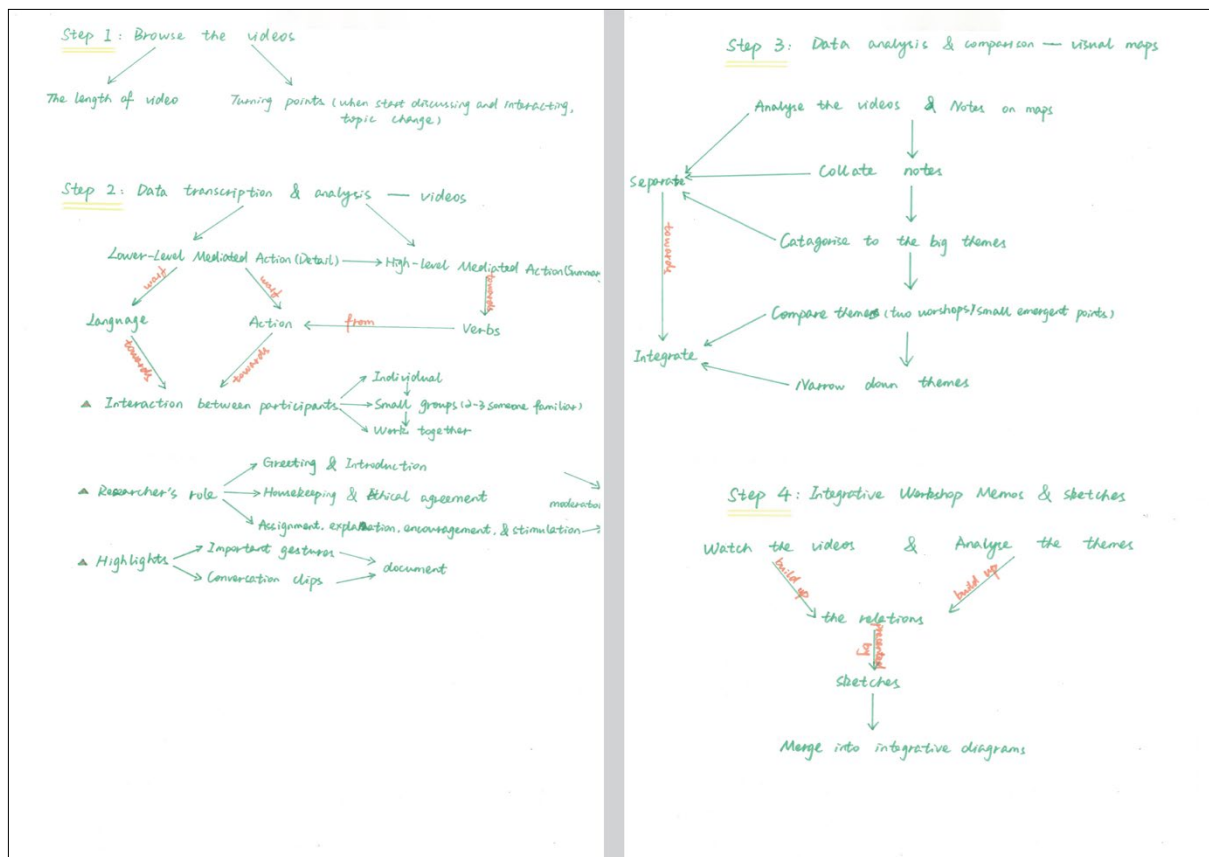 Step 1: Browse the videos
The length of video
Turning points (when start discussing and interacting,
topic change)
Step 2: Data transcription & analysis — videos
Lower-Level Mediated Action (Detail)
High-level Mediated Action (Summar
towards
Language
Action
from
Verbs
towards
towards
▲ Interaction between participants
Individual
Small groups (2-3 someone familiar)
Work together
▲ Researcher's role
Greeting & Introduction
Housekeeping & Ethical agreement
Assignment, explanation, encouragement, & stimulation
moderator
▲ Highlights
Important gestures
Conversation clips
document
Step 3: Data analysis & comparison — visual maps
Analyse the videos & Notes on maps
Separate
Collate notes
towards
Catagorise to the big themes
Compare themes (two worshops)(small emergent points)
Integrate
Narrow down themes
Step 4: Integrative Workshop Memos & sketches
Watch the videos & Analyse the themes
build up
build up
the relations
presented
by
sketches
Merge into integrative diagrams